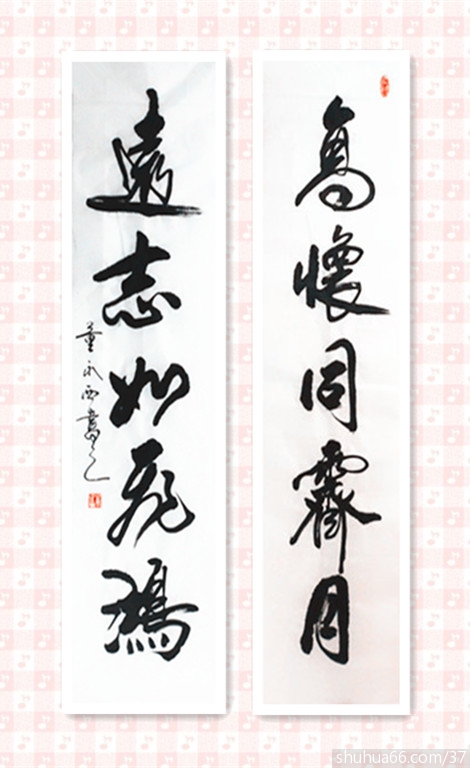 高懷同霽月
遠志如飛鴻
董永西書之
shuhua66.com/37